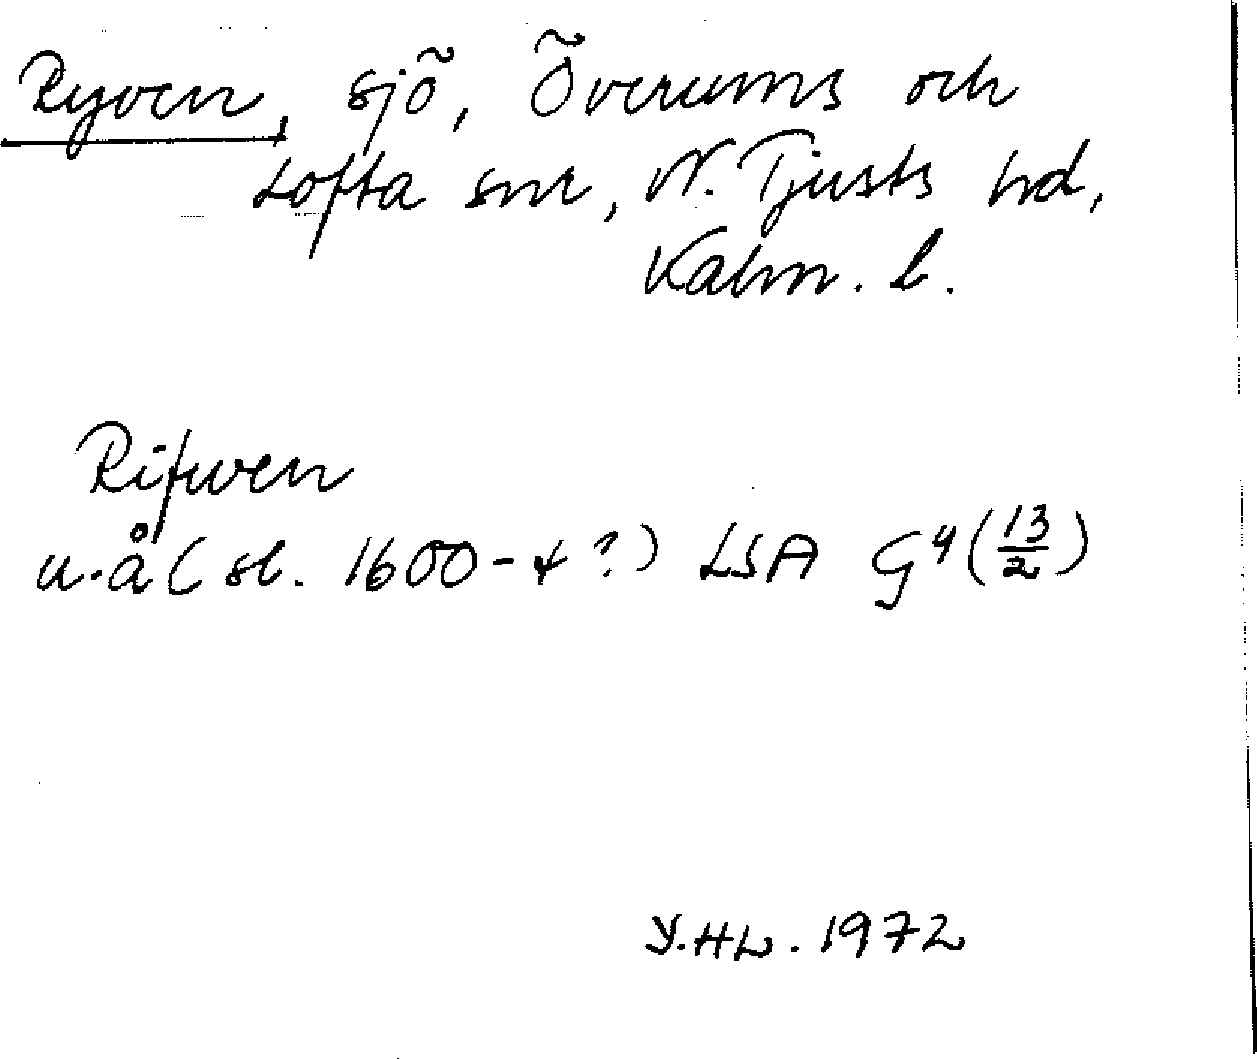 Ryven, sjö, Överums och
Lofta snr, N. Tjusts hd,
Kalm. l.
Rifwen
u.å (sl. 1600-t?) LSA G4(13/2)
Y.HL. 1972